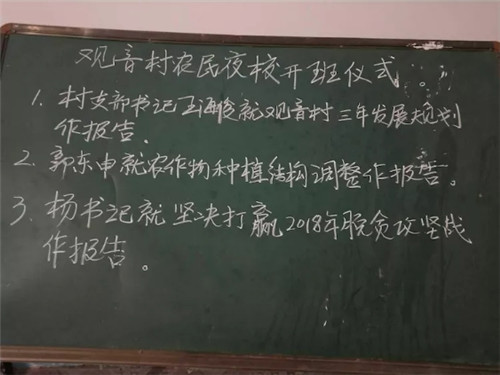 观音村农民夜校开班仪式。
1. 村支部书记王海俊就观音村三年发展规划
作报告.
2. 郭东申就农作物种植结构调整作报告。
3. 杨书记就坚决打赢2018年脱贫攻坚战
作报告。